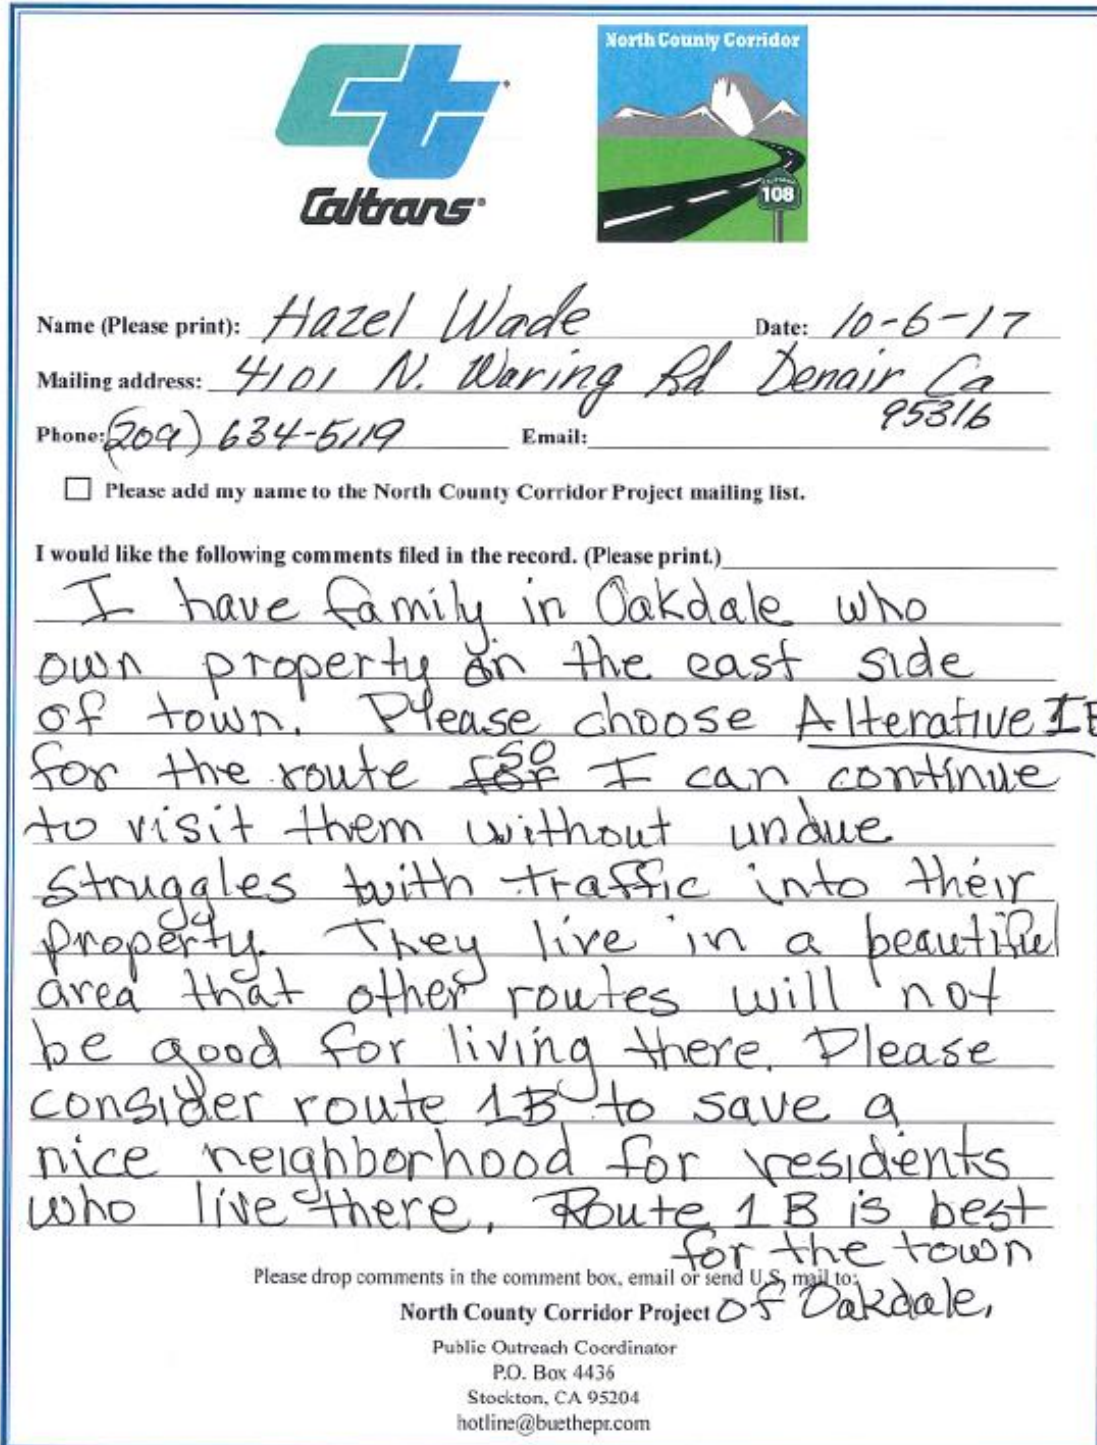 Caltrans
North County Corridor
CALIFORNIA
108
Name (Please print): Hazel Wade Date: 10-6-17
Mailing address: 4101 N. Waring Rd Denair Ca
95316
Phone: (209) 634-5119 Email:
Please add my name to the North County Corridor Project mailing list.
I would like the following comments filed in the record. (Please print.)
I have family in Oakdale who
own property on the east side
of town. Please choose Alterative 1B
for the route for so I can continue
to visit them without undue
struggles with traffic into their
property. They live in a beautiful
area that other routes will not
be good for living there. Please
consider route 1B to save a
nice neighborhood for residents
who live there. Route 1B is best
for the town
of Oakdale.
Please drop comments in the comment box, email or send U.S. mail to:
North County Corridor Project
Public Outreach Coordinator
P.O. Box 4436
Stockton, CA 95204
hotline@buethepr.com